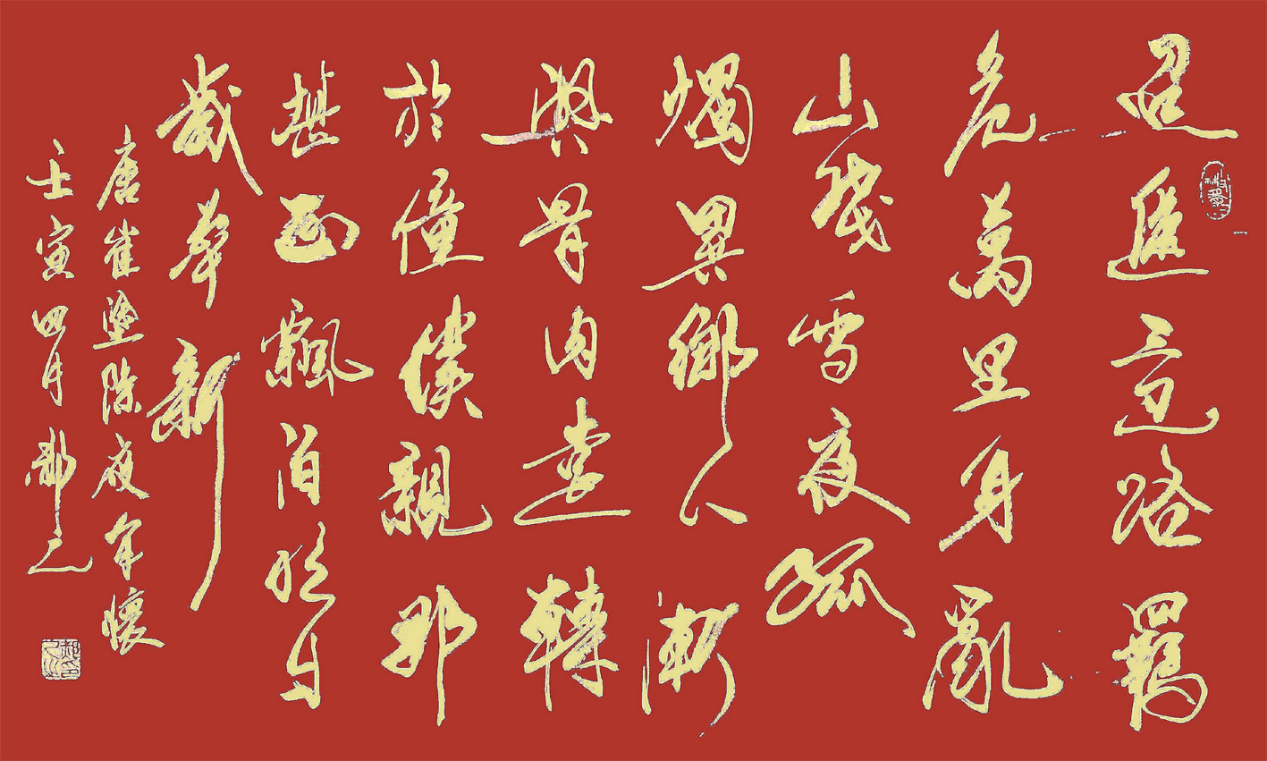 迢遞三巴路羈
危萬里身亂
山殘雪夜孤
燭異鄉人漸
與骨肉遠轉
於僮僕親那
堪正飄泊明日
歲華新
唐崔塗除夜有懷
壬寅四月